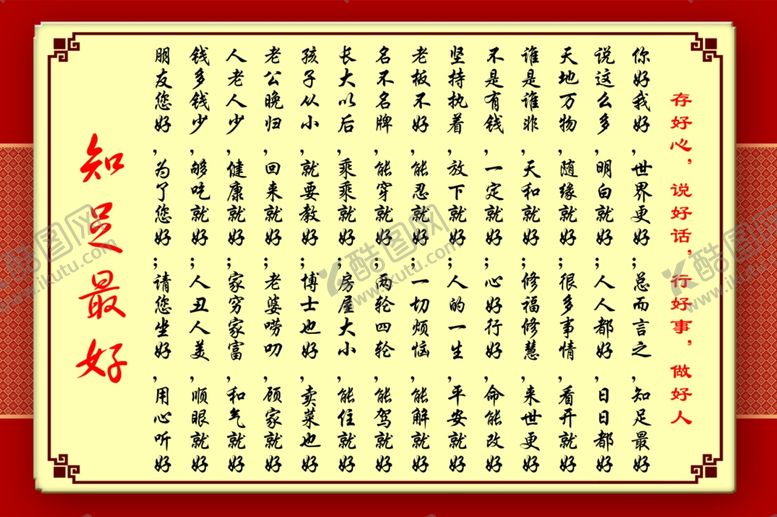 知足最好
朋友您好，为了您好；请您坐好，用心听好
钱多钱少，够吃就好；人丑人美，顺眼就好
人老人少，健康就好；家穷家富，和气就好
老公晚归，回来就好；老婆唠叨，顾家就好
孩子从小，就要教好；博士也好，卖菜也好
长大以后，乘乘就好；房屋大小，能住就好
名不名牌，能穿就好；两轮四轮，能驾就好
老板不好，能忍就好；一切烦恼，能解就好
坚持执着，放下就好；人的一生，平安就好
不是有钱，一定就好；心好行好，命能改好
谁是谁非，天和就好；修福修慧，来世更好
天地万物，随缘就好；很多事情，看开就好
说这么多，明白就好；人人都好，日日都好
你好我好，世界更好；总而言之，知足最好
存好心，说好话，行好事，做好人
酷图网
www.ikutu.com